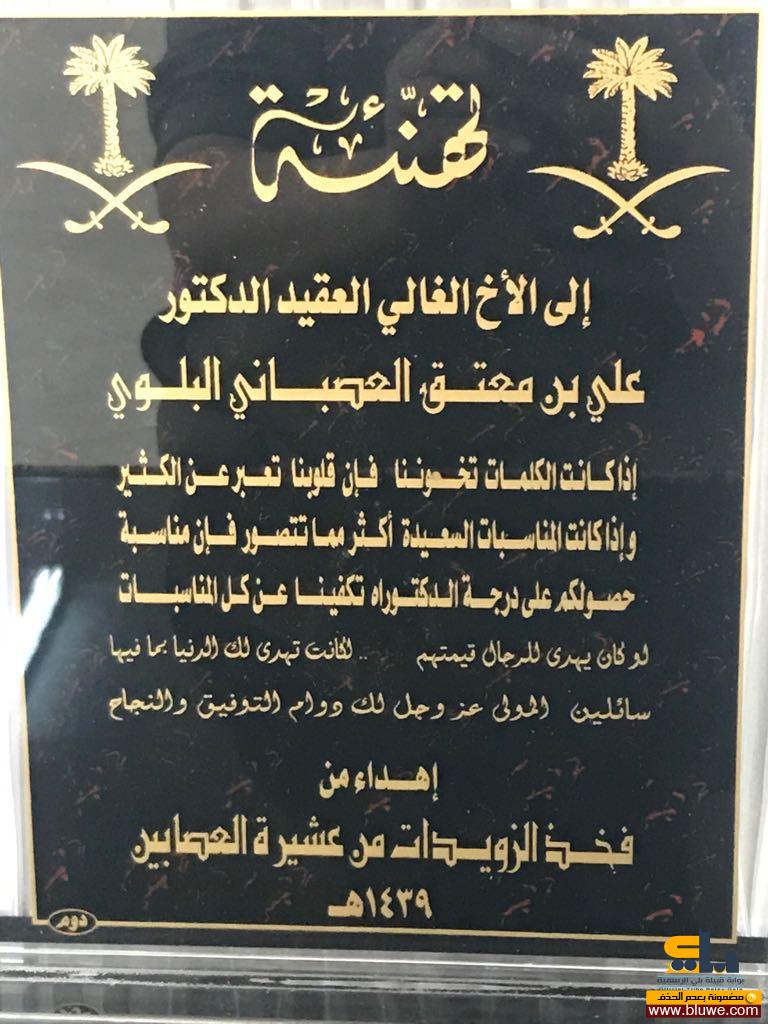 تهنئة
إلى الأخ الغالي العقيد الدكتور
علي بن معتق العصباني البلوي
إذا كانت الكلمات تخوننا فإن قلوبنا تعبر عن الكثير
وإذا كانت المناسبات السعيدة أكثر مما تتصور فإن مناسبة
حصولكم على درجة الدكتوراه تكفينا عن كل المناسبات
لو كان يهدى للرجال قيمتهم .. لكانت تهدى لك الدنيا بما فيها
سائلين المولى عز وجل لك دوام التوفيق والنجاح
إهداء من
فخذ الزويدات من عشيرة العصابين
١٤٣٩هـ
دوم
بلي
بوابة قبيلة بلي الرسمية
مضمونة بعدم الحذف
www.bluwe.com